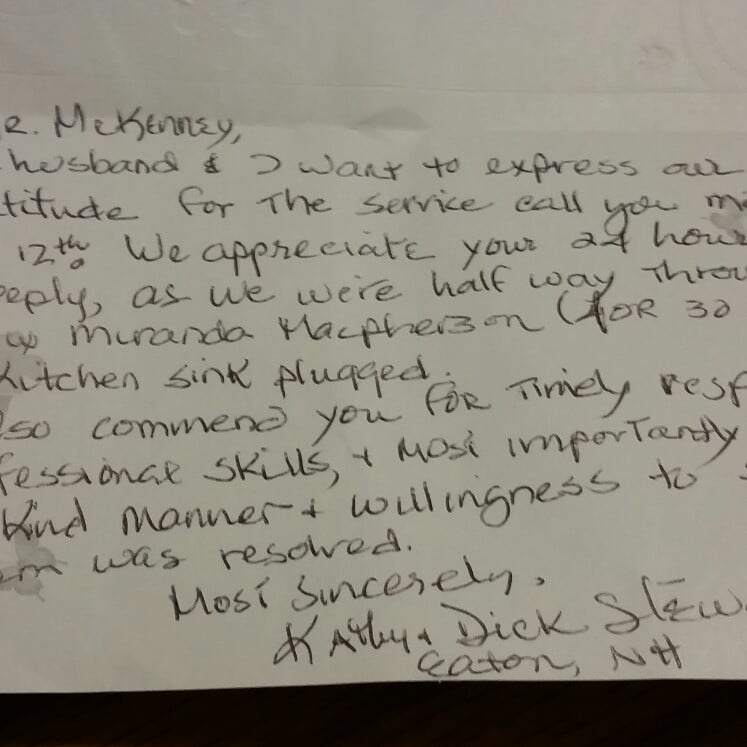 R. McKenney,
husband & I want to express our
titude for The service call you m
12th. We appreciate your 24 hour
eeply, as we were half way Throu
w/ Muranda Macpherson (for 30
Kitchen sink plugged.
so commend you for Timely resp
fessional skills, + most importantly
Kind manner + willingness to s
em was resolved.
Most Sincerely,
Kathy + Dick Stew
Eaton, NH